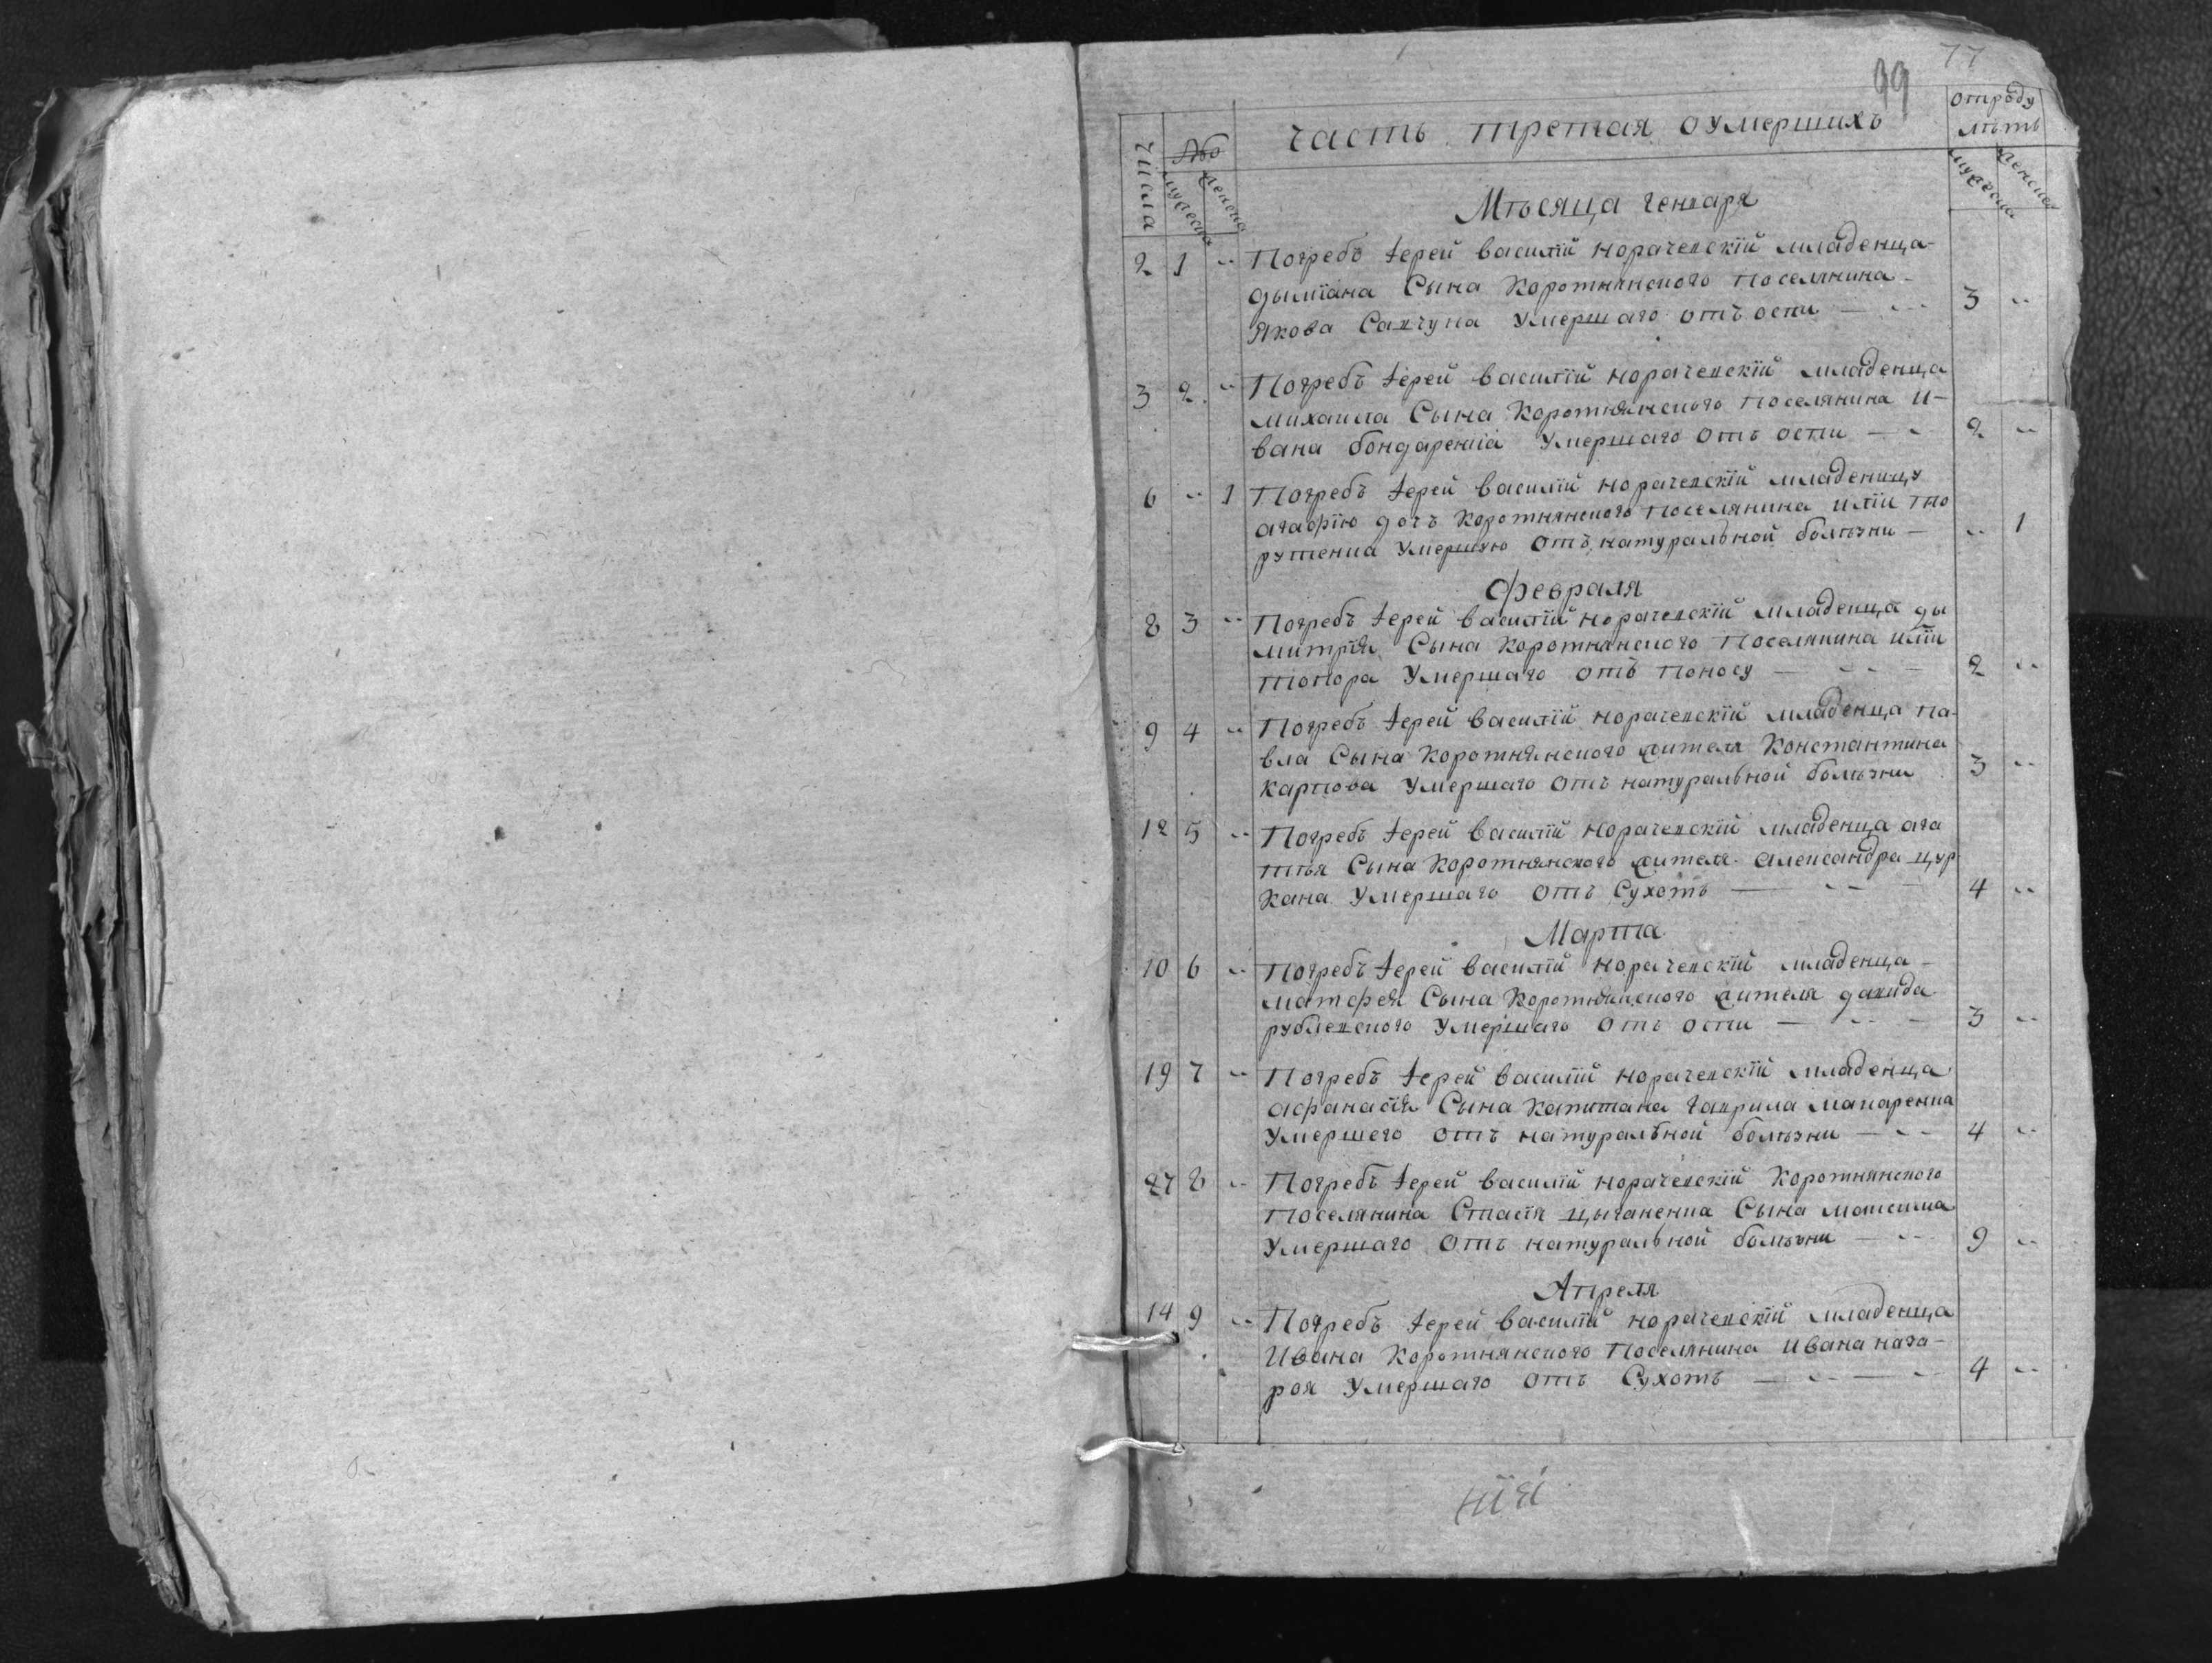 77
99
Числа
№о
мужеска
женска
часть третая оумершихъ
отроду
лѣтъ
мужеска
женска
Мѣсяца Генваря
2 1 " Погребъ іерей василій норачевскій младенца
дыміана Сына Коротнянского поселянина
Якова Савчука Умершаго отъ оспи 3 "
3 2 " Погребъ іерей василій норачевскій младенца
михаила Сына Коротнянского поселянина И-
вана бондаренка Умершаго отъ оспи 2 "
6 " 1 Погребъ іерей василій норачевскій младеницу
агафію дочъ Коротнянского поселянина иліи
Умершую отъ натуральной болѣзни " 1
Февраля
8 3 " Погребъ іерей василій норачевскій младенца ды
митрія Сына Коротнянского Поселянина иліи
топора Умершаго отъ поносу 2 "
9 4 " Погребъ іерей василій норачевскій младенца па-
вла Сына Коротнянского жителя Константина
карпова Умершаго отъ натуральной болѣзни 3 "
12 5 " Погребъ іерей василій норачевскій младенца ага
пія Сына Коротнянского жителя александра цур
кана Умершаго отъ Сухотъ 4 "
Марта
10 6 " Погребъ іерей василій норачевскій младенца
матфея Сына Коротнянского жителя давида
рублевского Умершаго отъ оспи 3 "
19 7 " Погребъ іерей василій норачевскій младенца
афанасія Сына Капитана гаврила макаренка
Умершего отъ натуральной болѣзни 4 "
27 8 " Погребъ іерей василій норачевскій Коротнянского
поселянина Спасія цыганенка Сына максима
Умершаго отъ натуральной болѣзни 9 "
Апреля
14 9 " Погребъ іерей василій норачевскій младенца
Ивана Коротнянского поселянина Ивана наза-
роя Умершаго отъ Сухотъ 4 "